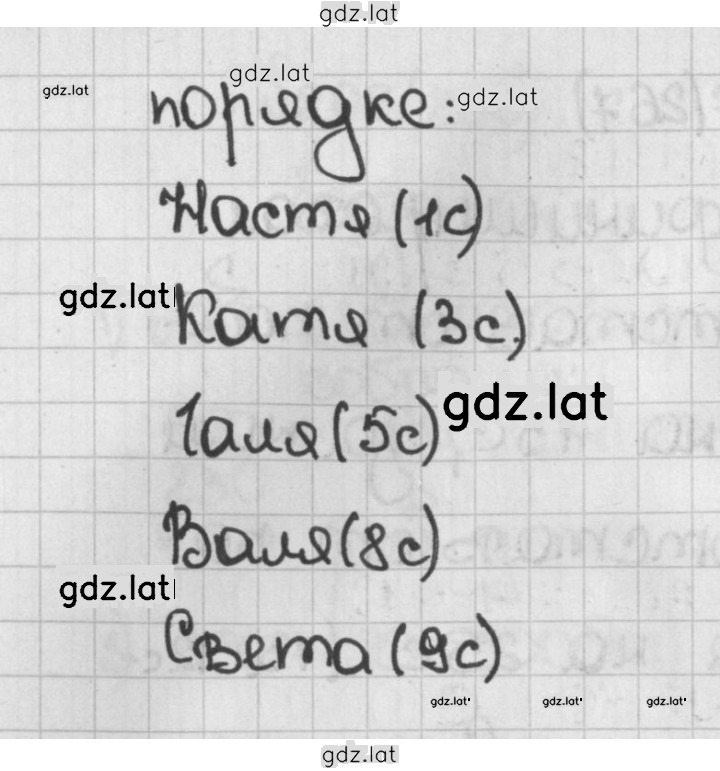 gdz.lat
gdz.lat
gdz.lat порядке: gdz.lat
Настя (1с)
gdz.lat Катя (3с)
Галя (5с) gdz.lat
Валя (8с)
gdz.lat
Света (9с)
gdz.lat gdz.lat gdz.lat
gdz.lat